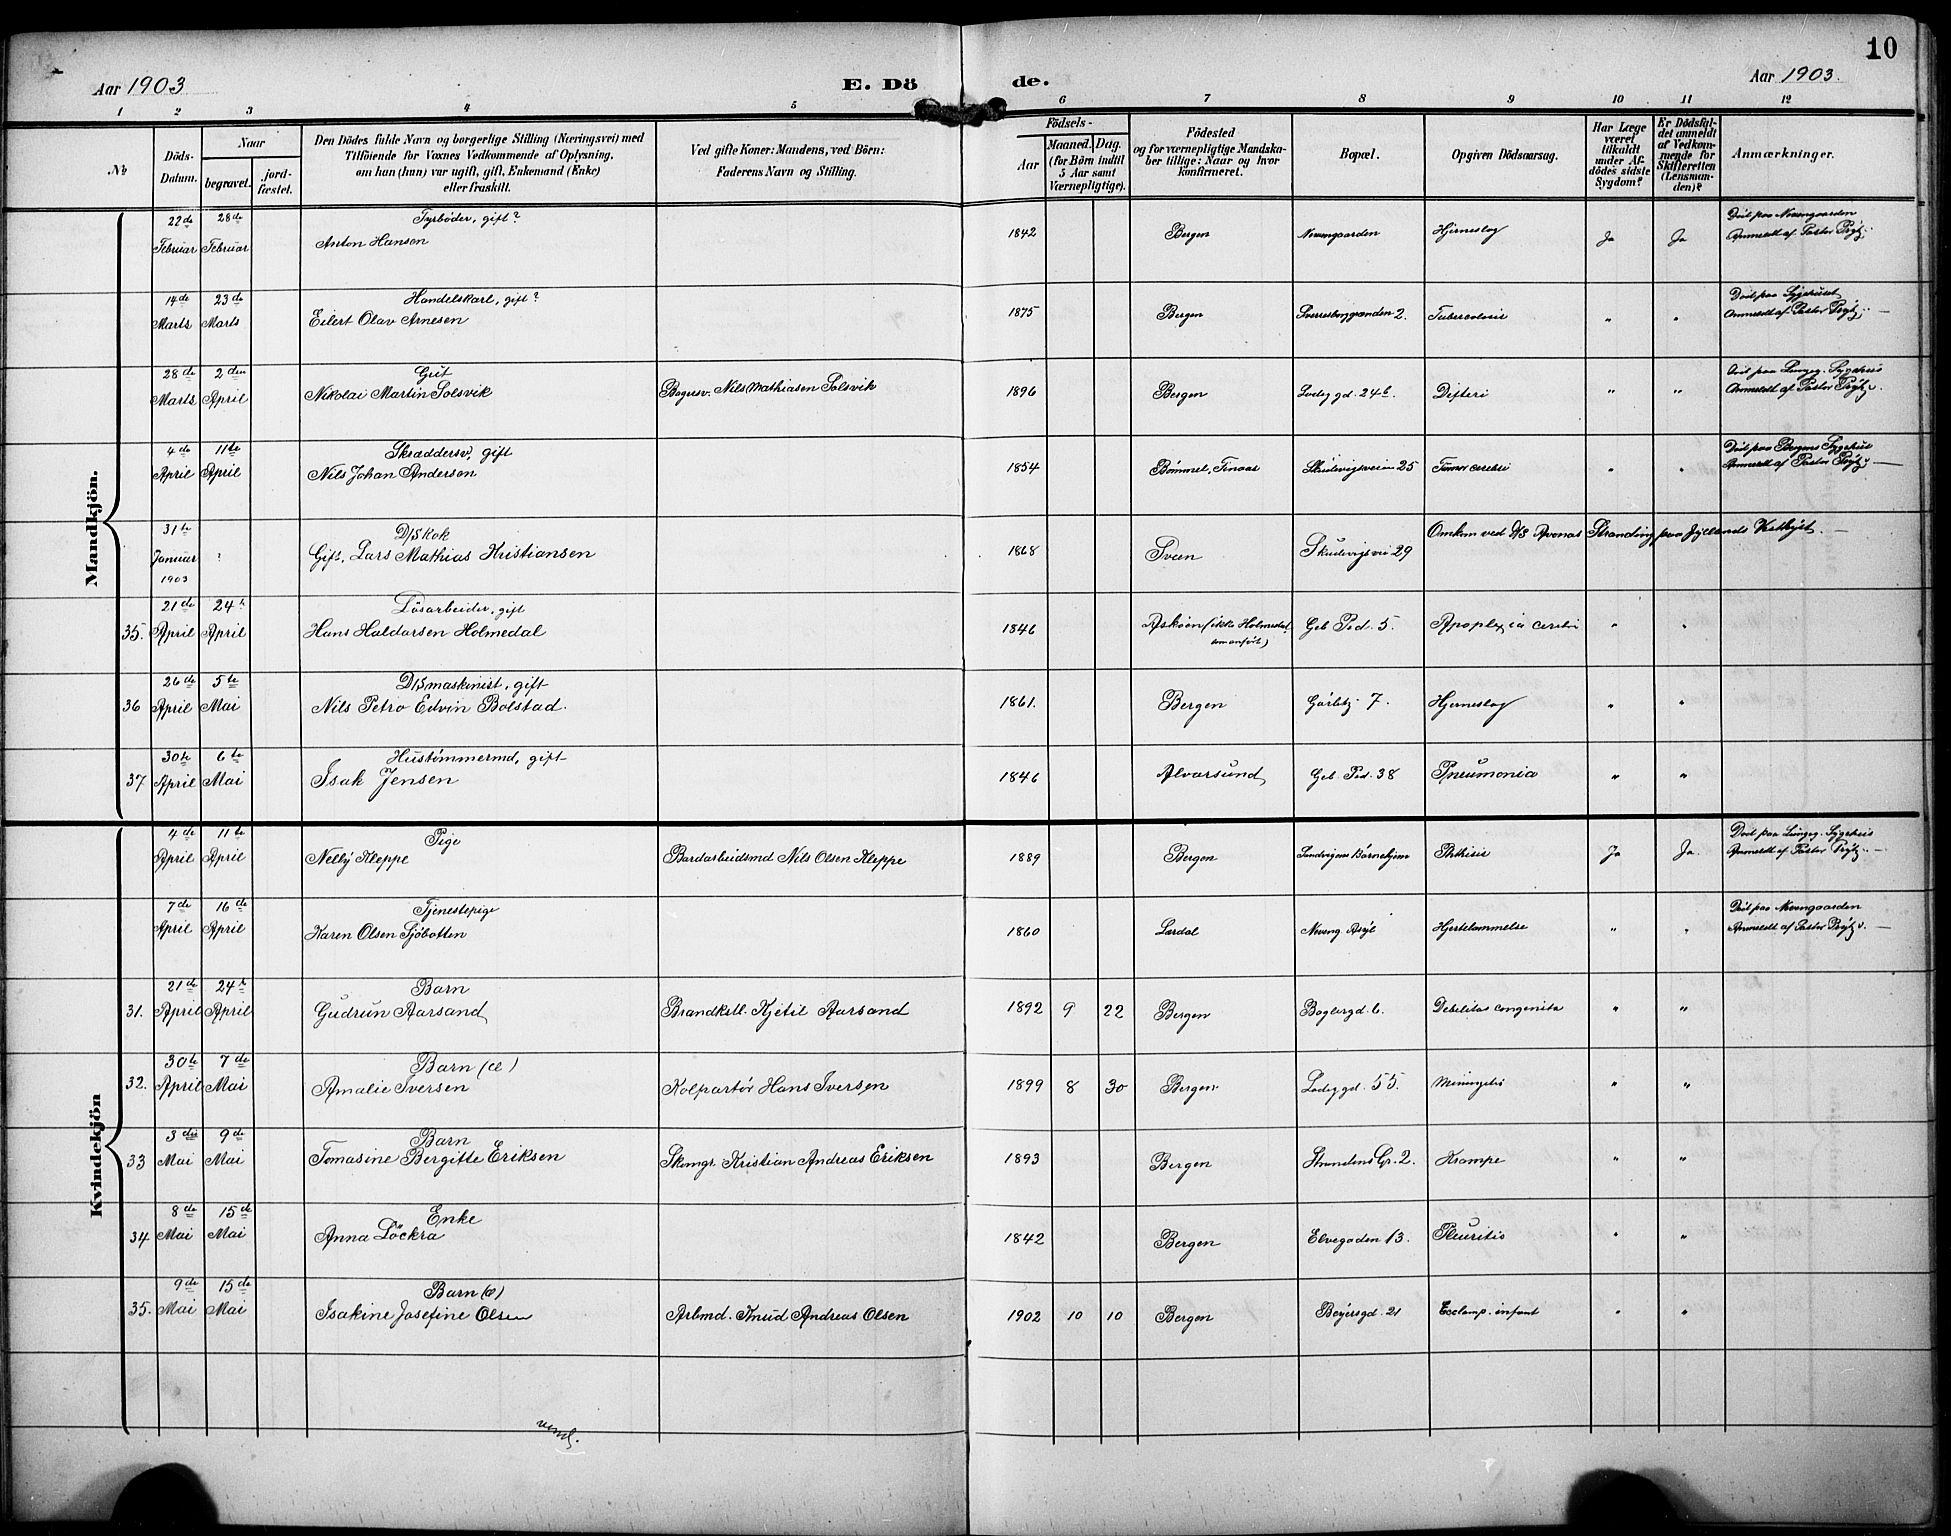 10
Aar 1903
E. Dö
de.
Aar 1903.
1 2 3 4 5 6 7 8 9 10 11 12
No
Döds-
Datum.
Naar
begravet.
jord-
fæstet.
Den Dödes fulde Navn og borgerlige Stilling (Næringsvei) med
Tilföiende for Voxnes Vedkommende af Oplysning,
om han (hun) var ugift, gift, Enkemand (Enke)
eller fraskilt.
Ved gifte Koner: Mandens, ved Börn:
Faderens Navn og Stilling.
Födsels-
Aar
Maaned. Dag.
(for Börn indtil
5 Aar samt
Værnepligtige).
Födested
og for værnepligtige Mandska-
ber tillige: Naar og hvor
konfirmeret.
Bopæl.
Opgiven Dödsaarsag.
Har Læge
været
tilkaldt
under Af-
dödes sidste
Sygdom?
Er Dödsfal-
det anmeldt
af Vedkom-
mende for
Skifteretten
(Lensman-
den)?
Anmærkninger.
Mandkjön.
22de 28de Fyrböder, gift? Död paa Neuengaarden
Februar Februar Anton Hansen 1842 Bergen Neuengaarden Hjerneslag Ja Ja Anmeldt af Pastor Prÿtz
14de 23de Handelskarl, gift? Död paa Sygehuset
Marts Marts Eilert Olav Arnesen 1875 Bergen Sverresborggaden 2. Tuberculosis " " Anmeldt af Pastor Prÿtz
28de 2den Gut Död paa Lungeg. Sygehus
Marts April Nikolai Martin Solsvik Bogusv. Nils Mathiasen Solsvik 1896 Bergen Lodeg gd. 24b. Difteri " " Anmeldt af Pastor Prÿtz
4de 11te Skræddersv, gift Död paa Bergens Sygehus
April April Nils Johan Andersen 1854 Bømmel, Finaas Skudevigsveien 25 Tumor cerebri " " Anmeldt af Pastor Prÿtz
31te D/S kok
Januar ? Gift, Lars Mathias Kristiansen 1868 Sveen Skudevigsvei 29 Omkom ved D/S Avonas Stranding paa Jyllands Vestkyst.
1903
21de 24de Løsarbeider, gift
35. April April Hans Haldorsen Holmedal 1846 Askøen (ikke Holmedal Geb Pod. 5. Apoplexia cerebri " "
som anført)
26de 5te D/S maskinist, gift
36 April Mai Nils Petro Edvin Bolstad. 1861. Bergen Görbitz 7. Hjerneslag " "
30te 6te Hustømmermd, gift
37 April Mai Isak Jensen 1846 Alversund Geb. Pod. 38 Pneumonia " "
Kvindekjön
4de 11te Pige Död paa Lungeg. Sygehus
April April Nelly Kleppe Bardarbeidsmd Nils Olsen Kleppe 1889 Bergen Sandvigens Børnehjem Phthisis Ja Ja. Anmeldt af Pastor Prÿtz
7de 16de Tjenestepige Död paa Neuengaarden
April April Karen Olsen Sjøbotten 1860 Lærdal Neueng. Asyl Hjertelammelse " " Anmeldt af Pastor Prÿtz
21de 24de Barn
31. April April Gudrun Aarsand Brandkstl. Kjetil Aarsand 1892 9 22 Bergen Boglergd. 6. Debilitas congenita " "
30te 7de Barn (æ)
32. April Mai Amalie Iversen Kolpartør Hans Iversen 1899 8 30 Bergen Lodeg gd. 55. Meningitis " "
3die 9de Barn
33 Mai Mai Tomasine Bergitte Eriksen Skomgr. Kristian Andreas Eriksen 1893 Bergen Strandens Gr. 2. Krampe " "
8de 15de Enke
34 Mai Mai Anna Löckra 1842 Bergen Elvegaden 13. Pleuritis " "
9de 15de Barn (æ)
35. Mai Mai Isakine Josefine Olsen Arbmd. Knud Andreas Olsen 1902 10 10 Bergen Beyersgd. 21 Esclamp. infant " "
vend.